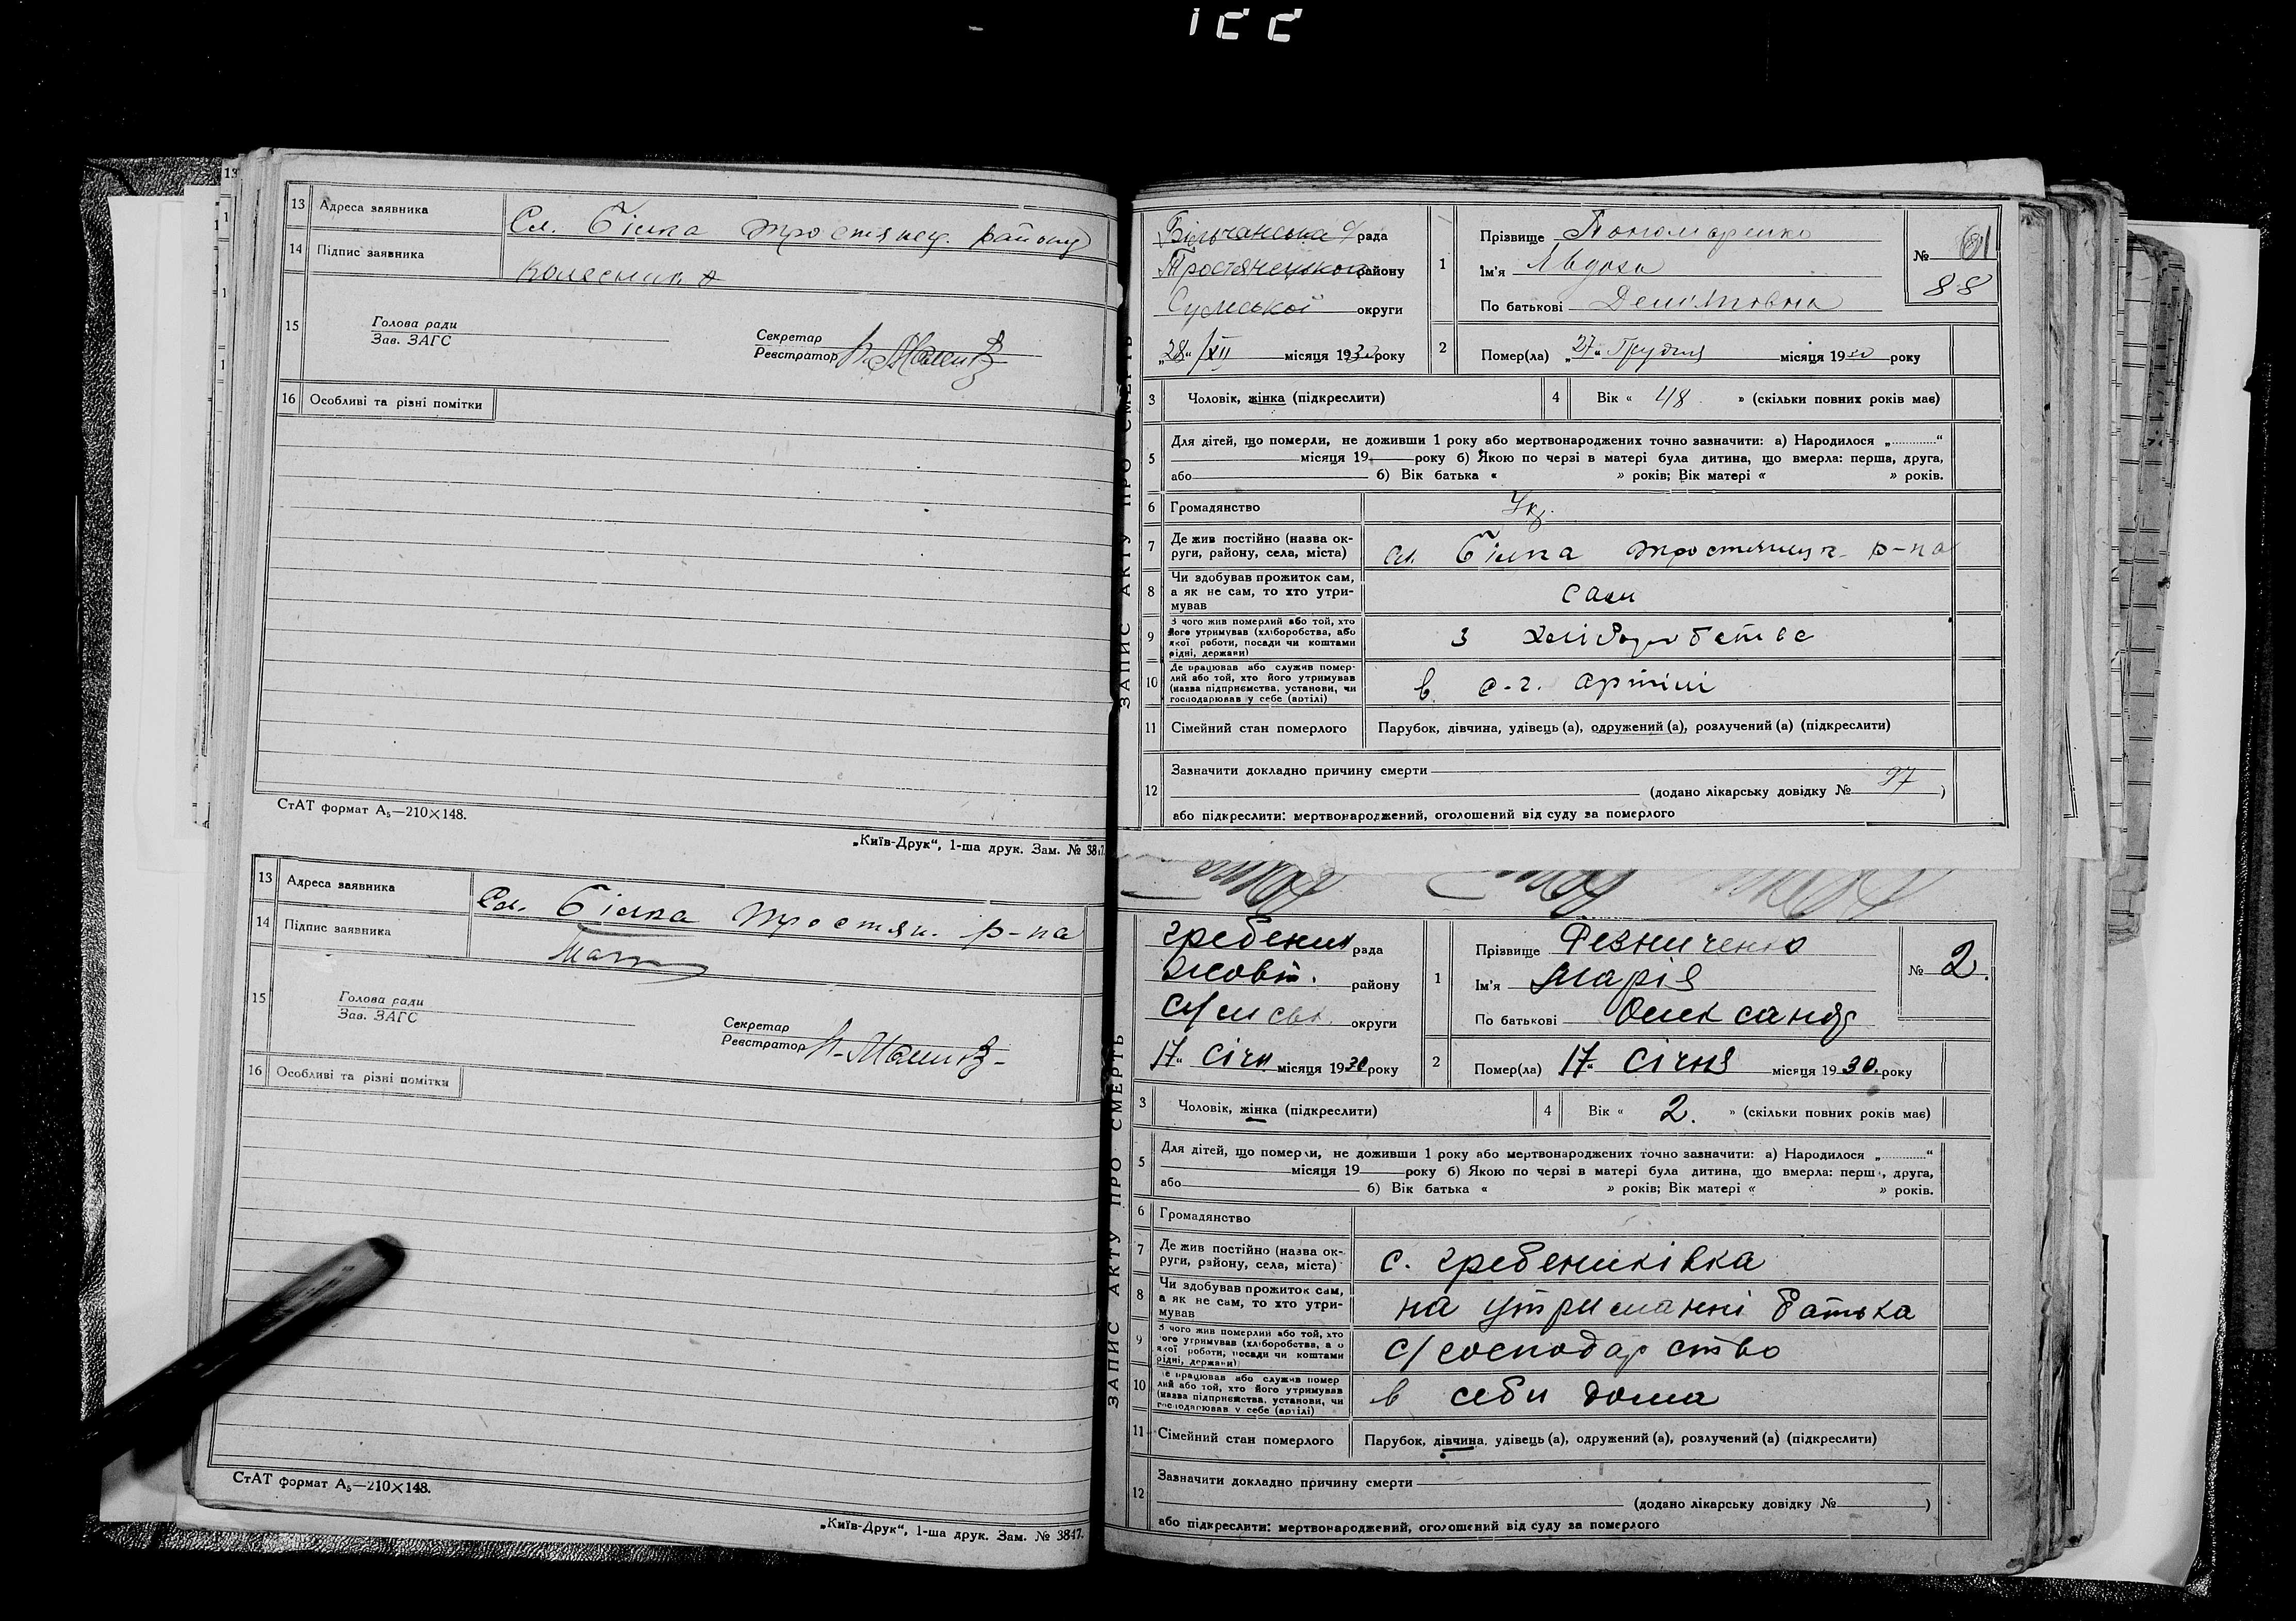 13 Адреса заявника Сл. Білка Тростянец. району
14 Підпис заявника Колесник
15 Голова ради
Зав. ЗАГС
Секретар
Реєстратор
16 Особливі та різні помітки
СтАТ формат А₅—210×148.
„Київ-Друк“, 1-ша друк. Зам. № 3847.
13 Адреса заявника Сл. Білка Тростян. р-на
14 Підпис заявника
15 Голова ради
Зав. ЗАГС
Секретар
Реєстратор
16 Особливі та різні помітки
СтАТ формат А₅—210×148.
„Київ-Друк“, 1-ша друк. Зам. № 3847.
ЗАПИС АКТУ ПРО СМЕРТЬ
Більчанська с/рада
Тростянецького району
Сумської округи
„28“ /XII місяця 1930 року
1 Прізвище Пономаренко
Ім'я Явдоха
По батькові
№ 61
88
2 Помер(ла) „27“ Грудня місяця 1930 року
3 Чоловік, жінка (підкреслити)
4 Вік « 48 » (скільки повних років має)
5 Для дітей, що померли, не доживши 1 року або мертвонароджених точно зазначити: а) Народилося „............“
місяця 19 року б) Якою по черзі в матері була дитина, що вмерла: перша, друга,
або б) Вік батька « » років; Вік матері « » років.
6 Громадянство Укр.
7 Де жив постійно (назва округи, району, села, міста) сл. Білка Тростянецьк. р-на
8 Чи здобував прожиток сам, а як не сам, то хто утримував сам
9 З чого жив померлий або той, хто його утримував (хліборобства, або якої роботи, посади чи коштами рідні, держави) з хліборобства
10 Де працював або служив померлий або той, хто його утримував (назва підприємства, установи, чи господарював у себе (артілі) в с-г. артілі
11 Сімейний стан померлого Парубок, дівчина, удівець (а), одружений (а), розлучений (а) (підкреслити)
12 Зазначити докладно причину смерти
(додано лікарську довідку № 97 )
або підкреслити: мертвонароджений, оголошений від суду за померлого
ЗАПИС АКТУ ПРО СМЕРТЬ
гребеник рада
Жовт. району
Сумськ. округи
„17“ Січн місяця 1930 року
1 Прізвище Резниченко
Ім'я Марія
По батькові Олександр
№ 2.
2 Помер(ла) „17“ Січня місяця 1930. року
3 Чоловік, жінка (підкреслити)
4 Вік « 2. » (скільки повних років має)
5 Для дітей, що померли, не доживши 1 року або мертвонароджених точно зазначити: а) Народилося „............“
місяця 19 року б) Якою по черзі в матері була дитина, що вмерла: перша, друга,
або б) Вік батька « » років; Вік матері « » років.
6 Громадянство
7 Де жив постійно (назва округи, району, села, міста) с. гребениківка
8 Чи здобував прожиток сам, а як не сам, то хто утримував на утриманні батька
9 З чого жив померлий або той, хто його утримував (хліборобства, або якої роботи, посади чи коштами рідні, держави) с/господарство
10 Де працював або служив померлий або той, хто його утримував (назва підприємства, установи, чи господарював у себе (артілі) в себи дома
11 Сімейний стан померлого Парубок, дівчина, удівець (а), одружений (а), розлучений (а) (підкреслити)
12 Зазначити докладно причину смерти
(додано лікарську довідку № )
або підкреслити: мертвонароджений, оголошений від суду за померлого